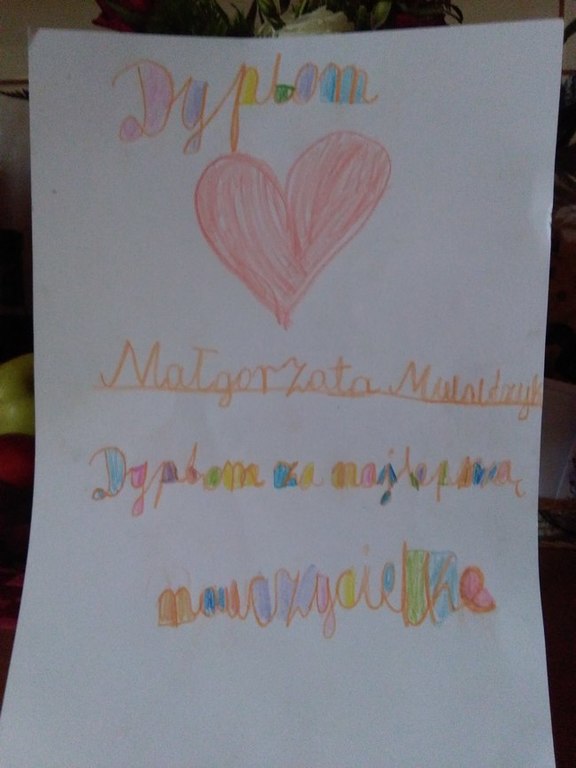 Dyplom
Małgorzata
Dyplom za najlepszą
nauczycielkę